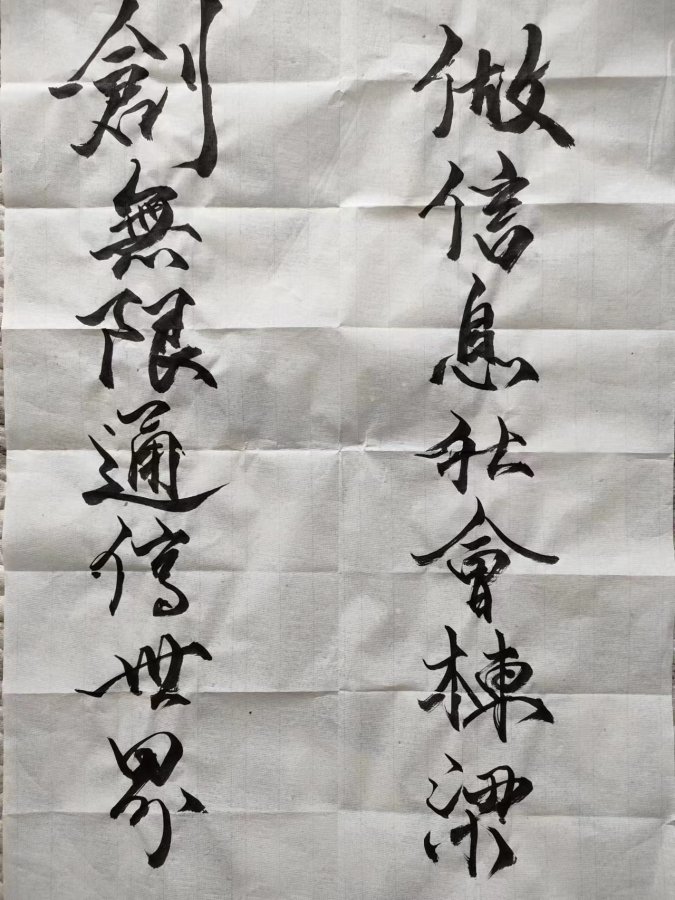 做信息社會棟梁
創無限通停世界